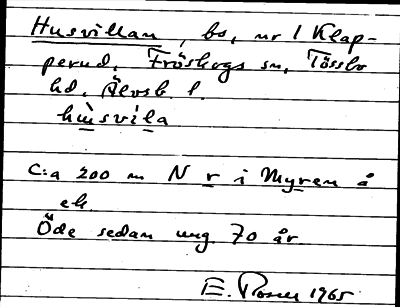 Husvillan, bs, nr 1 Klap-
perud, Fröskogs sn, Tössbo
hd, Älvsb. l.
hùsvíla
C:a 200 m N r i Myren å
ek.
Öde sedan ung 70 år.
E. 1965